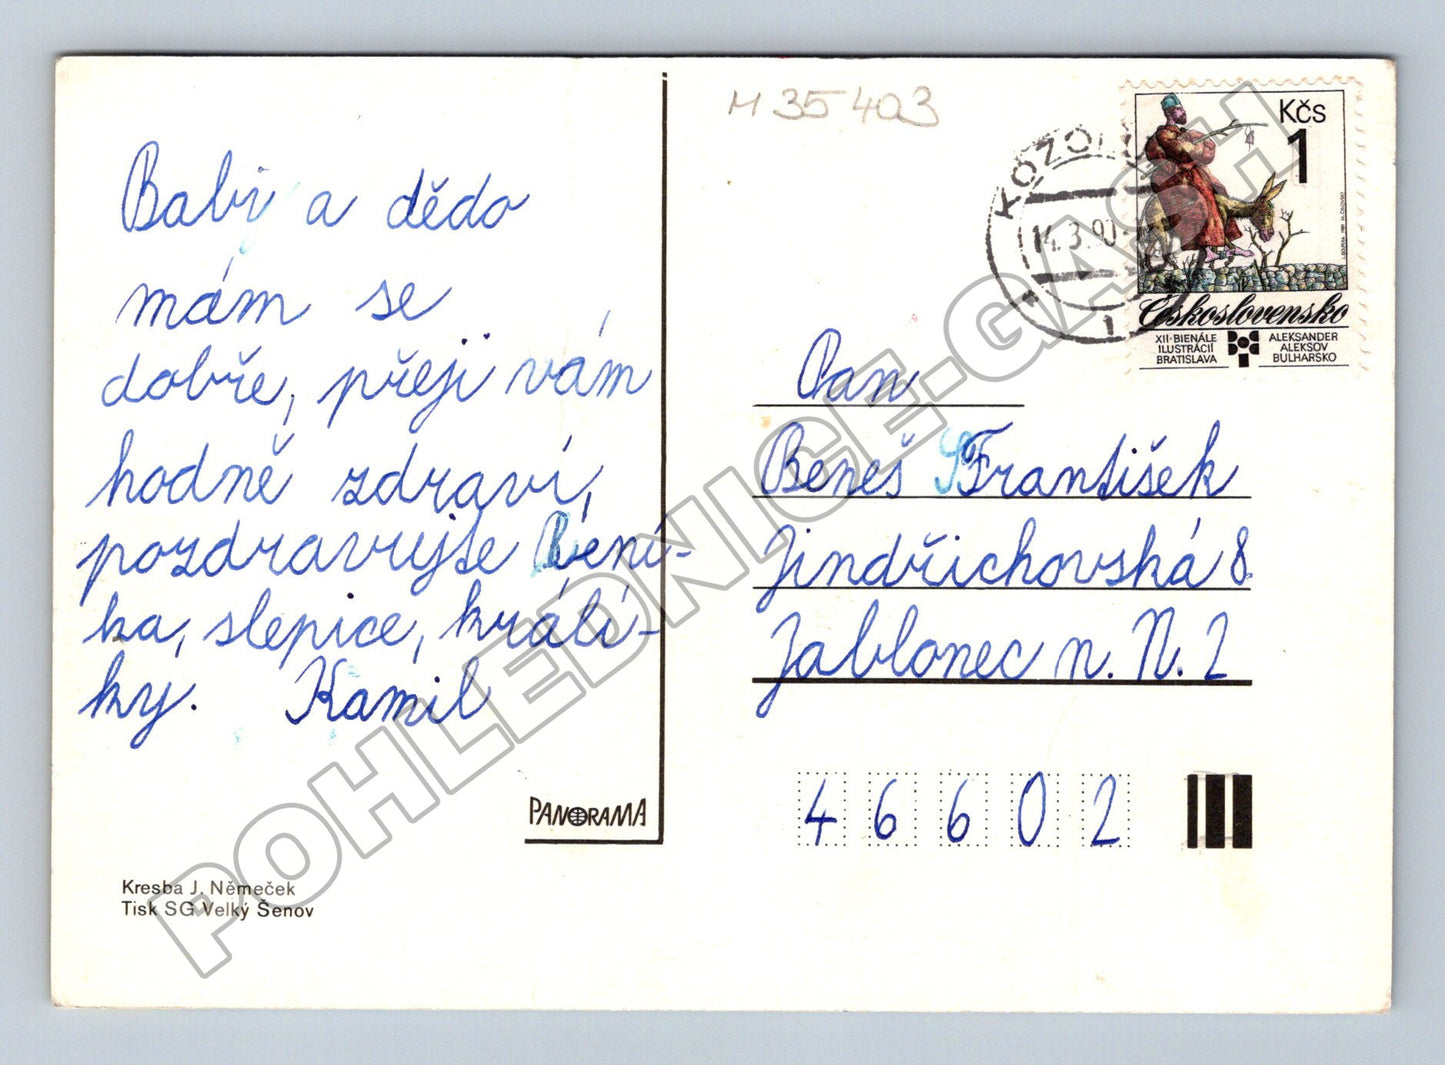 Babi a dědo
mám se
dobře, přeji vám
hodně zdraví,
pozdravujte Bení-
ka, slepice, králí-
ky. Kamil
PANORAMA
Kresba J. Němeček
Tisk SG Velký Šenov
M 35 403
14.3.90
1
Kčs
1
Československo
XII·BIENÁLE
ILUSTRÁCIÍ
BRATISLAVA
ALEKSANDER
ALEKSOV
BULHARSKO
Pan
Beneš František
Jindřichovská 8
Jablonec n. N. 2
46602
POHLEDNICE-GASH